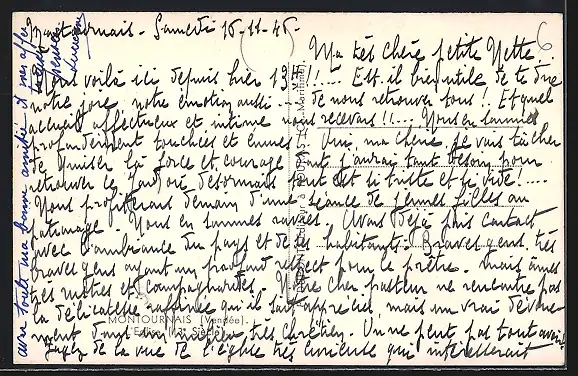 Montournais - Samedi 16-11-46 -
Ma très chère petite Yette
Nous voilà ici depuis hier 19 H !!.... Est-il bien utile de te dire
notre joie, notre émotion aussi .... de nous retrouver tous !! Et quel
accueil affectueux et intime nous recevons !!.... Nous en sommes
profondément touchés et émus - Oui, ma chère, je vais tâcher
de puiser la force et courage dont j'aurai tant besoin pour
retrouver le désormais tout est si triste et si vide !....
Nous profiterons demain d'une séance de jeunes filles au
patronage. Nous en sommes ravies. Avons déjà pris contact
avec l'ambiance du pays et de ses habitants. Braves gens, très
braves gens ayant un profond respect pour le prêtre - mais âmes
très . Notre cher pasteur ne rencontre pas
la délicatesse raffinée qu'il sait apprécier mais un vrai dévoue-
ment dans un milieu très chrétien. On ne peut pas tout avoir !
de la vue de l'église très ancienne qui intéresserait
avec toute ma bonne amitié et mes
MONTOURNAIS (Vendée).
L'Église (XIe Siècle)
6